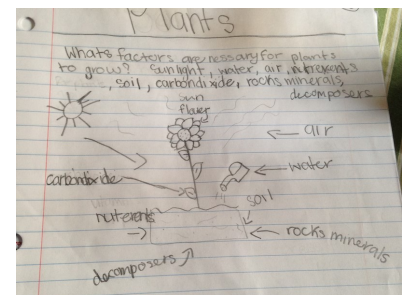 Plants
Whats factors are nessary for plants
to grow? Sunlight, water, air, nutrexents
soil, carbondixide, rocks minerals,
decomposers
sun
flower
air
water
carbondioxide
soil
nuterents
rocks minerals
decomposers